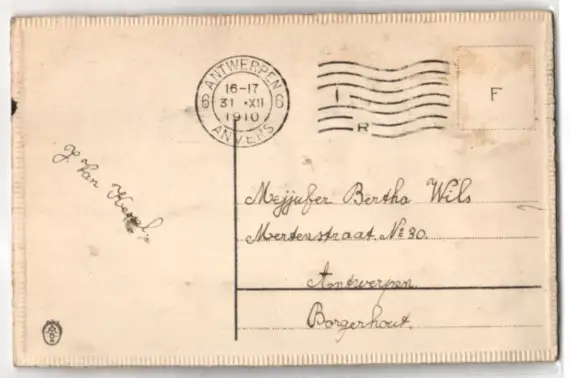 ANTWERPEN
16-17
31 · XII
1910
6 6
ANVERS
I
R
F
J. Van
Mejjufer Bertha Wils
Mertenstraat. No 30.
Antwerpen.
Borgerhout.